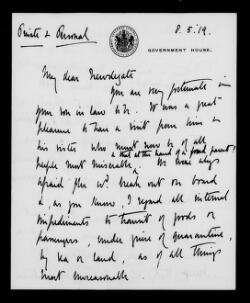 Private & Personal
8.5.19.
GOVERNMENT HOUSE.
My dear Newdegate
You are very fortunate in
your son in law &c. It was a great
pleasure to have a visit from him &
his sister who must now be of all
& that at the hand of a fond parent!
people most miserable. We were always
afraid flu wd. break out on board
&, as you know, I regard all internal
impediments to transit of goods or
passengers, under guise of quarantine,
by sea or land, as of all things
most unreasonable.